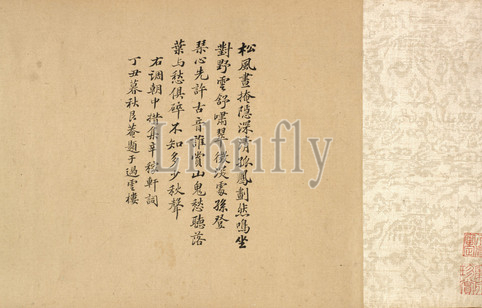 松風晝掩隱深清孤鳳劃然鳴坐
對野雲舒嘯翠微深處孫登
琴心先許古音誰賞山鬼愁聽落
葉与愁俱碎不知多少秋聲
右調朝中措集辛稼軒詞
丁丑暮秋艮菴題于過雲樓
Librifly